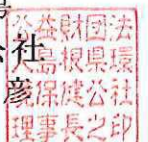 公社
彦
公益財団法人
島根県環境
保健公社
理事長之印